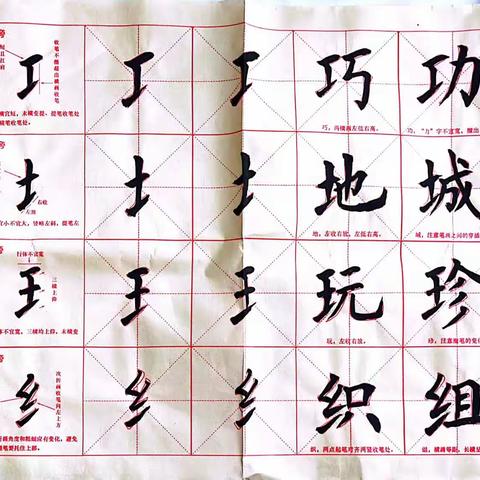 旁
收笔不能超出横画收笔
工 工 工 巧 功
宜短，末横变提，提笔收笔处
横笔收笔处。
巧，两横画左低右高。
功，“力”字不宜宽，撇出
旁
右收
左放
土 土 土 地 城
宜小不宜大，竖略左斜，提笔左
地，左收右放，左低右高。
城，注意笔画之间的穿插
旁
行体不宜宽
三横上仰
王 王 王 玩 珍
体不宜宽，三横均上仰，末横变
玩，左收右放。
珍，注意撇笔的变化
旁
次折画收笔向左上方
纟 纟 纟 织 组
折画角度和粗细应有变化，避免
提要托住上部。
织，两点起笔对齐两竖收笔处。
组，横画等距，长横